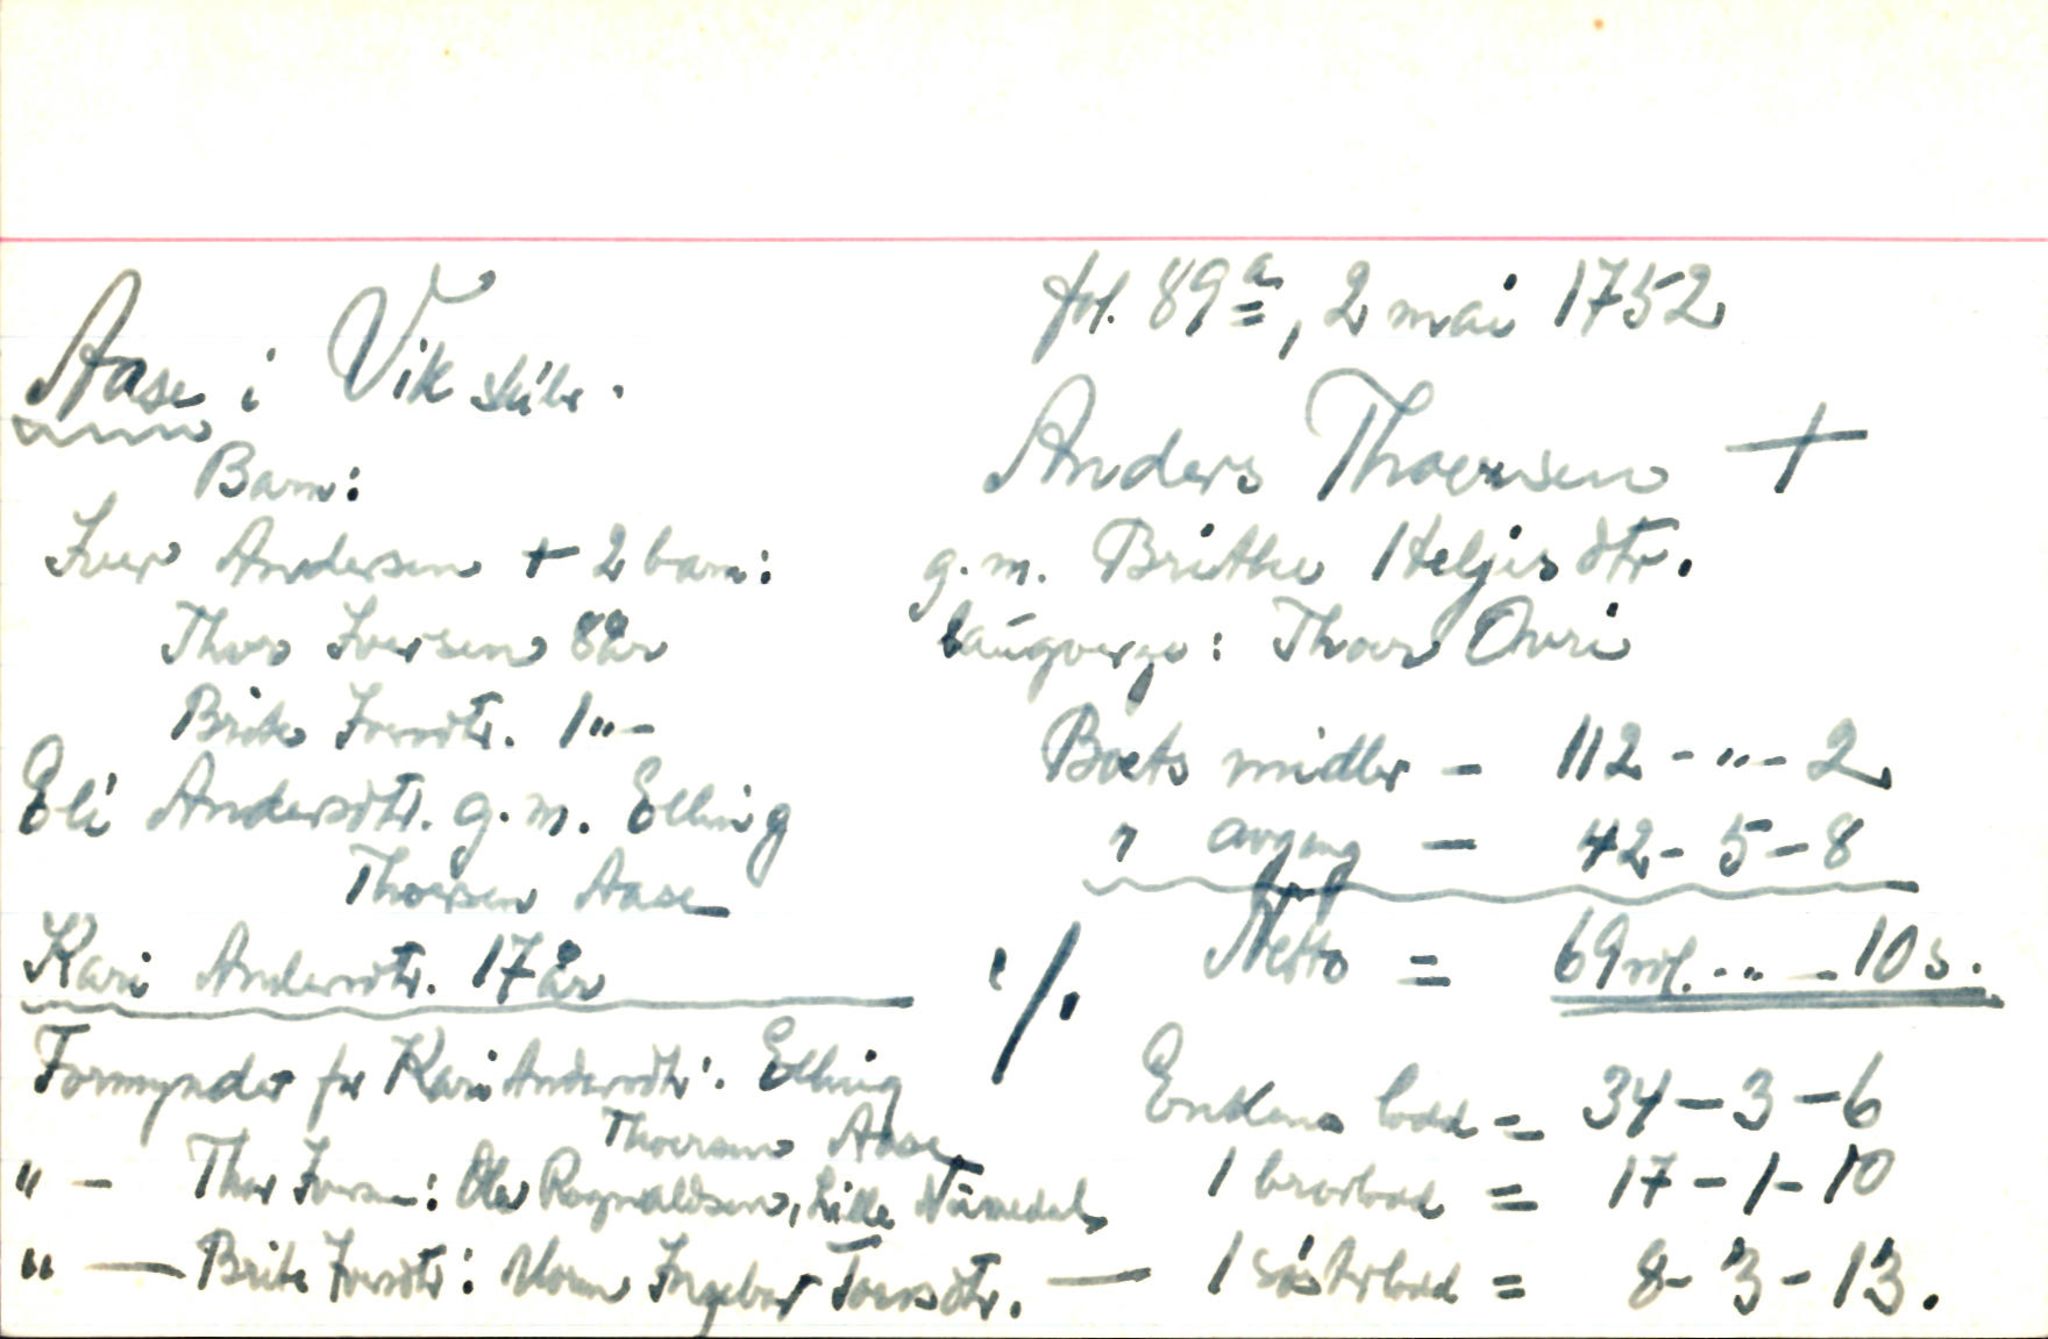 fol. 89a, 2 mai 1752
Aase i Vik skibr.
Anders Thoersen +
Barn:
g.m. Brithe Heljesdtr.
Iver Andersen + 2 barn:
laugverge: Thoer Ovri
Thor Iversen 8 år
Brite Iversdtr. 1 " -
Boets midler - 112 - " - 2
Eli Andersdtr. g.m. Elling
Thoersen Aase
" avgang - 42 - 5 - 8
Kari Andersdtr. 17 år
Netto = 69 rdl. - " - 10 s.
Formynder for Kari Andersdtr: Elling
Thoersen Aase
" - Thor Iversen: Ola Ragnvaldsen, Lille
" - Brite Iversdtr: Moren Ingebor Toersdtr.
Enkens lodd = 34 - 3 - 6
1 brorlodd = 17 - 1 - 10
1 søsterlodd = 8 - 3 - 13.